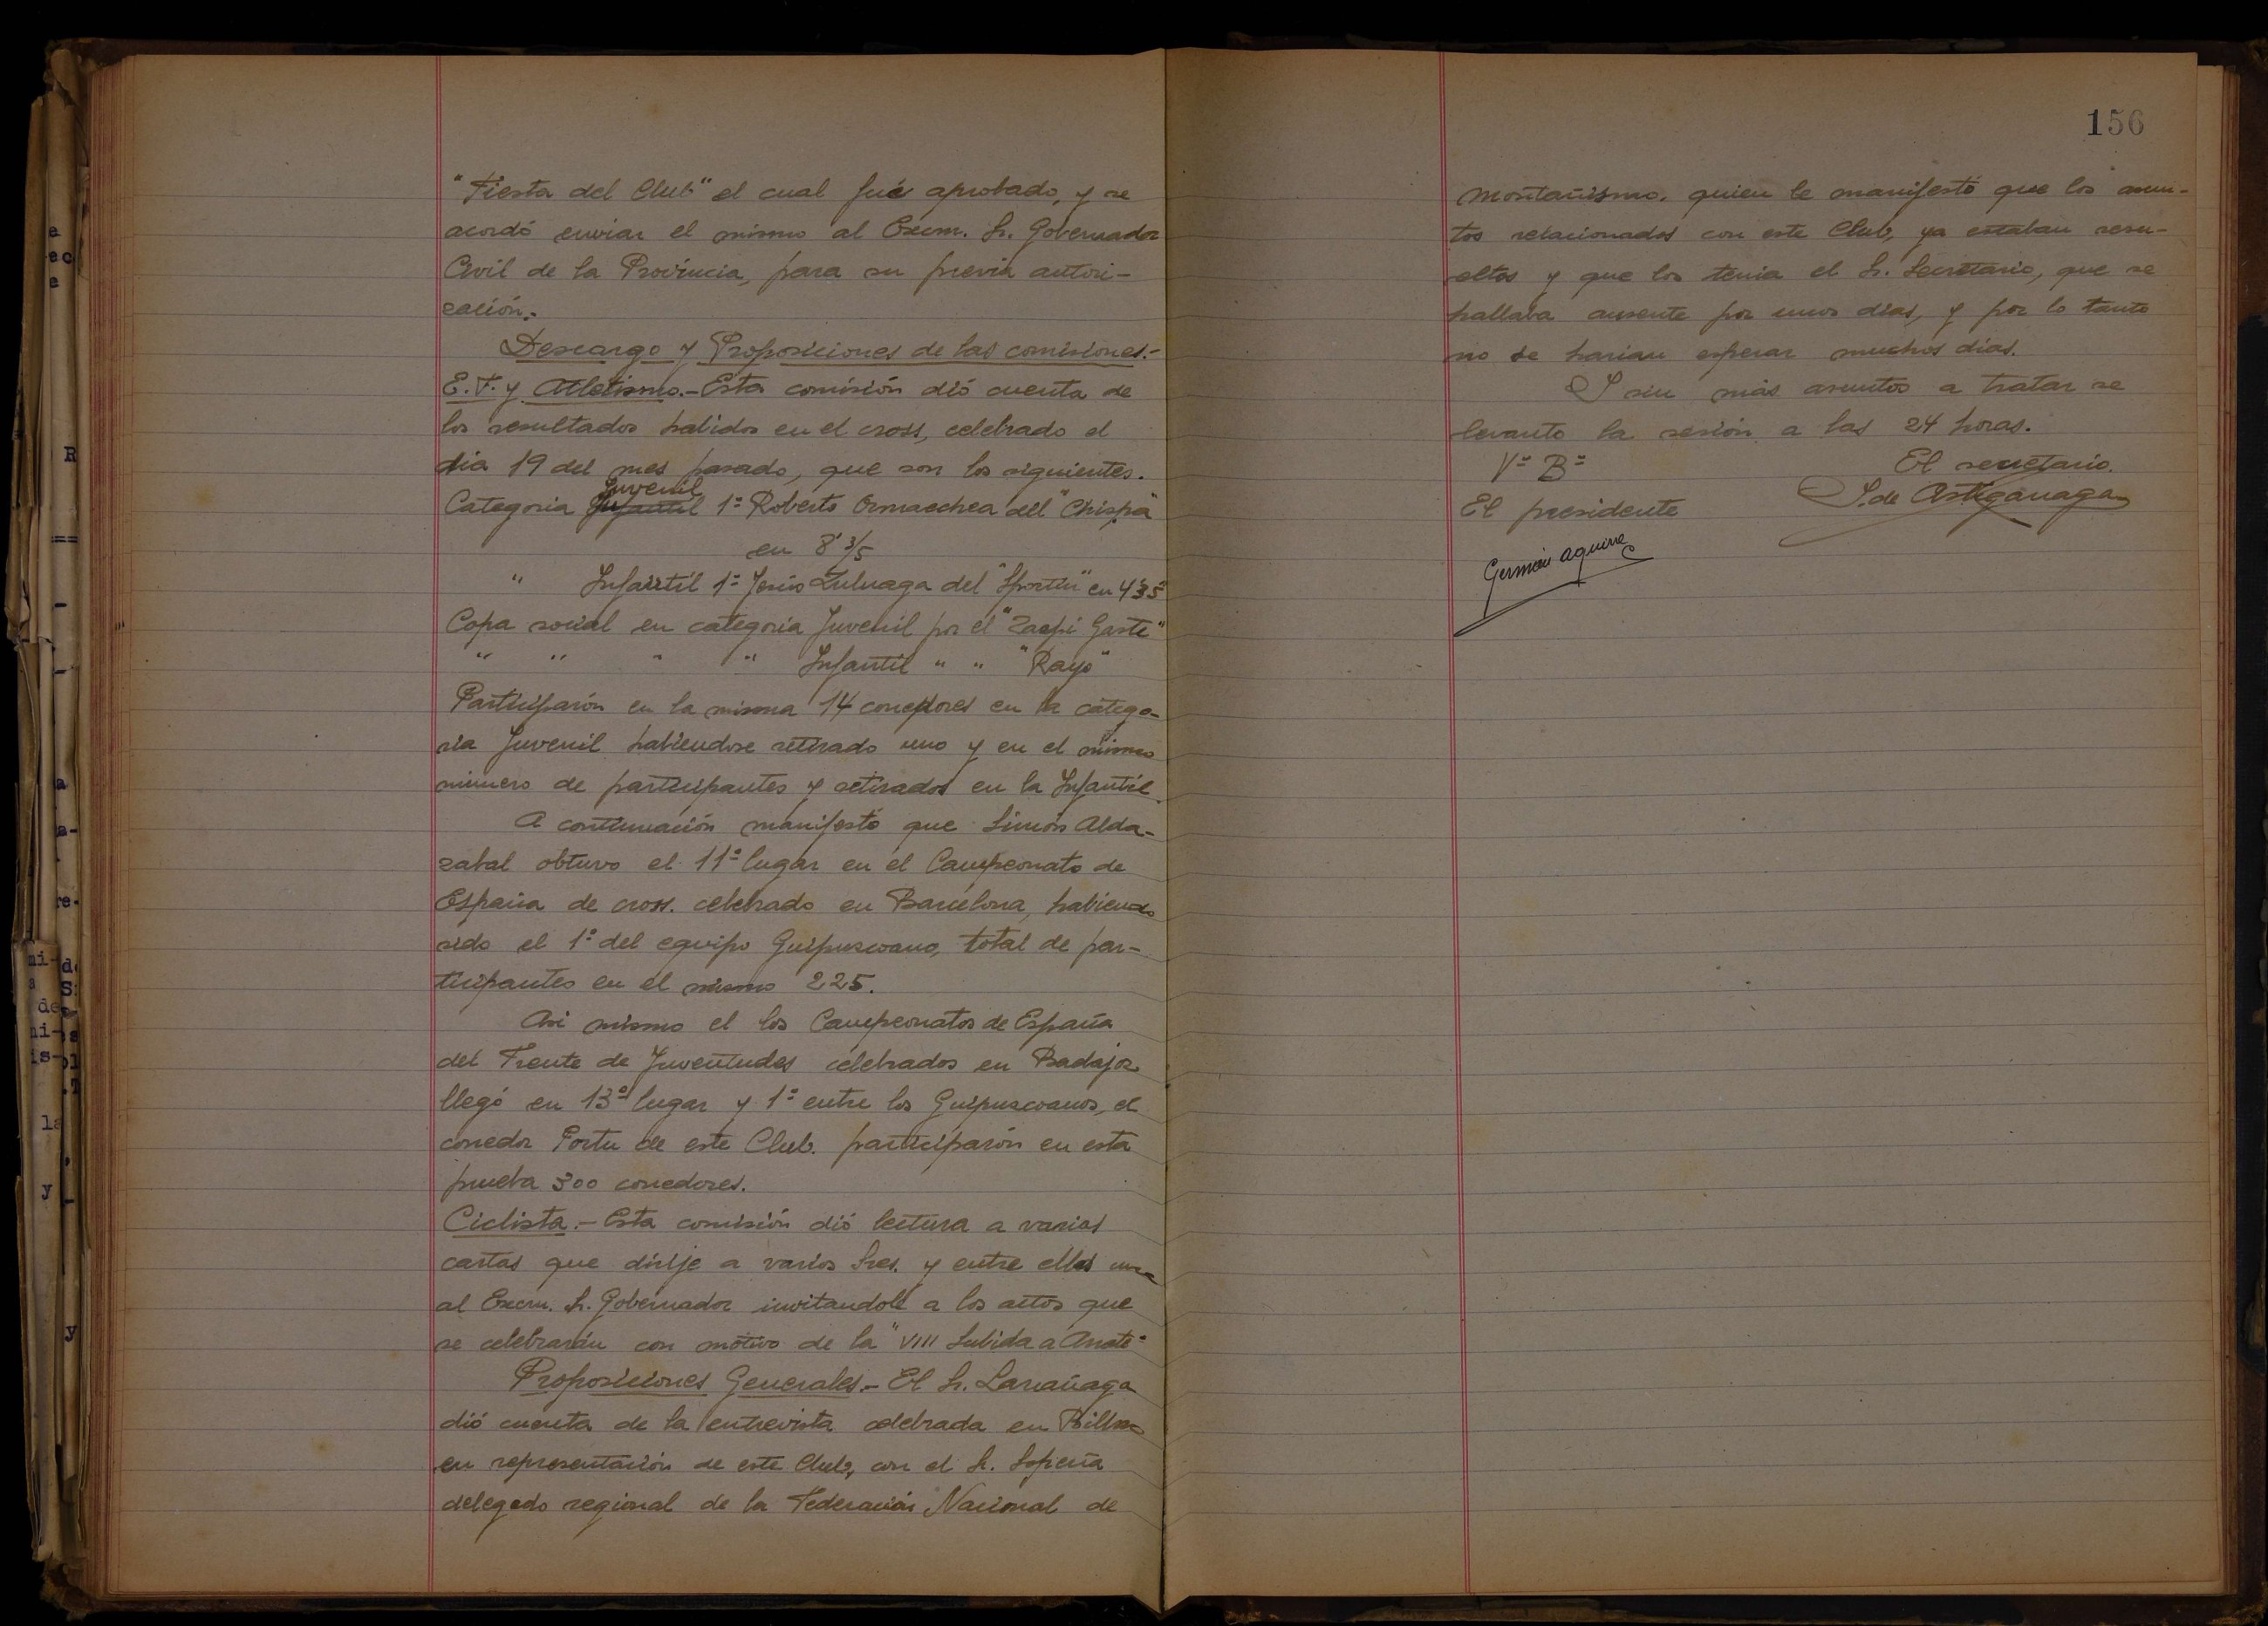 "Fiesta del Club" el cual fué aprobado, y se
acordó enviar el mismo al Excm. Sr. Gobernador
Civil de la Provincia, para su previa autori-
zación.-
Descargo y Proposiciones de las comisiones.-
E.F. y Atletismo.- Esta comisión dió cuenta de
los resultados habidos en el cross, celebrado el
dia 19 del mes pasado, que son los siguientes.
Juvenil
Categoria Infantil 1º Roberto Ormaechea del "Chispa"
en 8' 3/5
" Infantil 1º Jesús Zuluaga del "Sportin" en
Copa social en categoria Juvenil por el "Zazpi Gaste"
" " " " Infantil " " "Rayo"
Participarón en la misma 14 corredores en la catego-
ria Juvenil habiendose retirado uno y en el mismo
número de participantes y retirados en la Infantil.
A continuación manifestó que Simón Alda-
zabal obtuvo el 11º lugar en el Campeonato de
España de cross. celebrado en Barcelona, habiendo
sido el 1º del equipo Guipuscoano, total de par-
ticipantes en el mismo 225.
Asi mismo el los Campeonatos de España
del Frente de Juventudes celebrados en Badajoz
llegó en 13º lugar y 1º entre los Guipuscoanos, el
corredor Portu de este Club. participarón en esta
prueba 300 corredores.
Ciclista.- Esta comisión dió lectura a varias
cartas que dirije a varios Sres. y entre ellas una
al Excm. Sr. Gobernador invitandole a los actos que
se celebrarán con motivo de la "VIII Subida a Arrate"
Proposiciones Generales.- El Sr. Larrañaga
dió cuenta de la entrevista celebrada en Bilbao
en representación de este Club, con el Sr. Sopeña
delegado regional de la Federación Nacional de
156
Montañismo. quien le manifestó que los asun-
tos relacionados con este Club, ya estaban resu-
eltos y que los tenia el Sr. Secretario, que se
hallaba ausente por unos dias, y por lo tanto
no se harian esperar muchos dias.
Y sin más asuntos a tratar se
levanto la sesión a las 24 horas.
Vº Bº El secretario.
El presidente S. de Astiganaga
Germán Aguirre